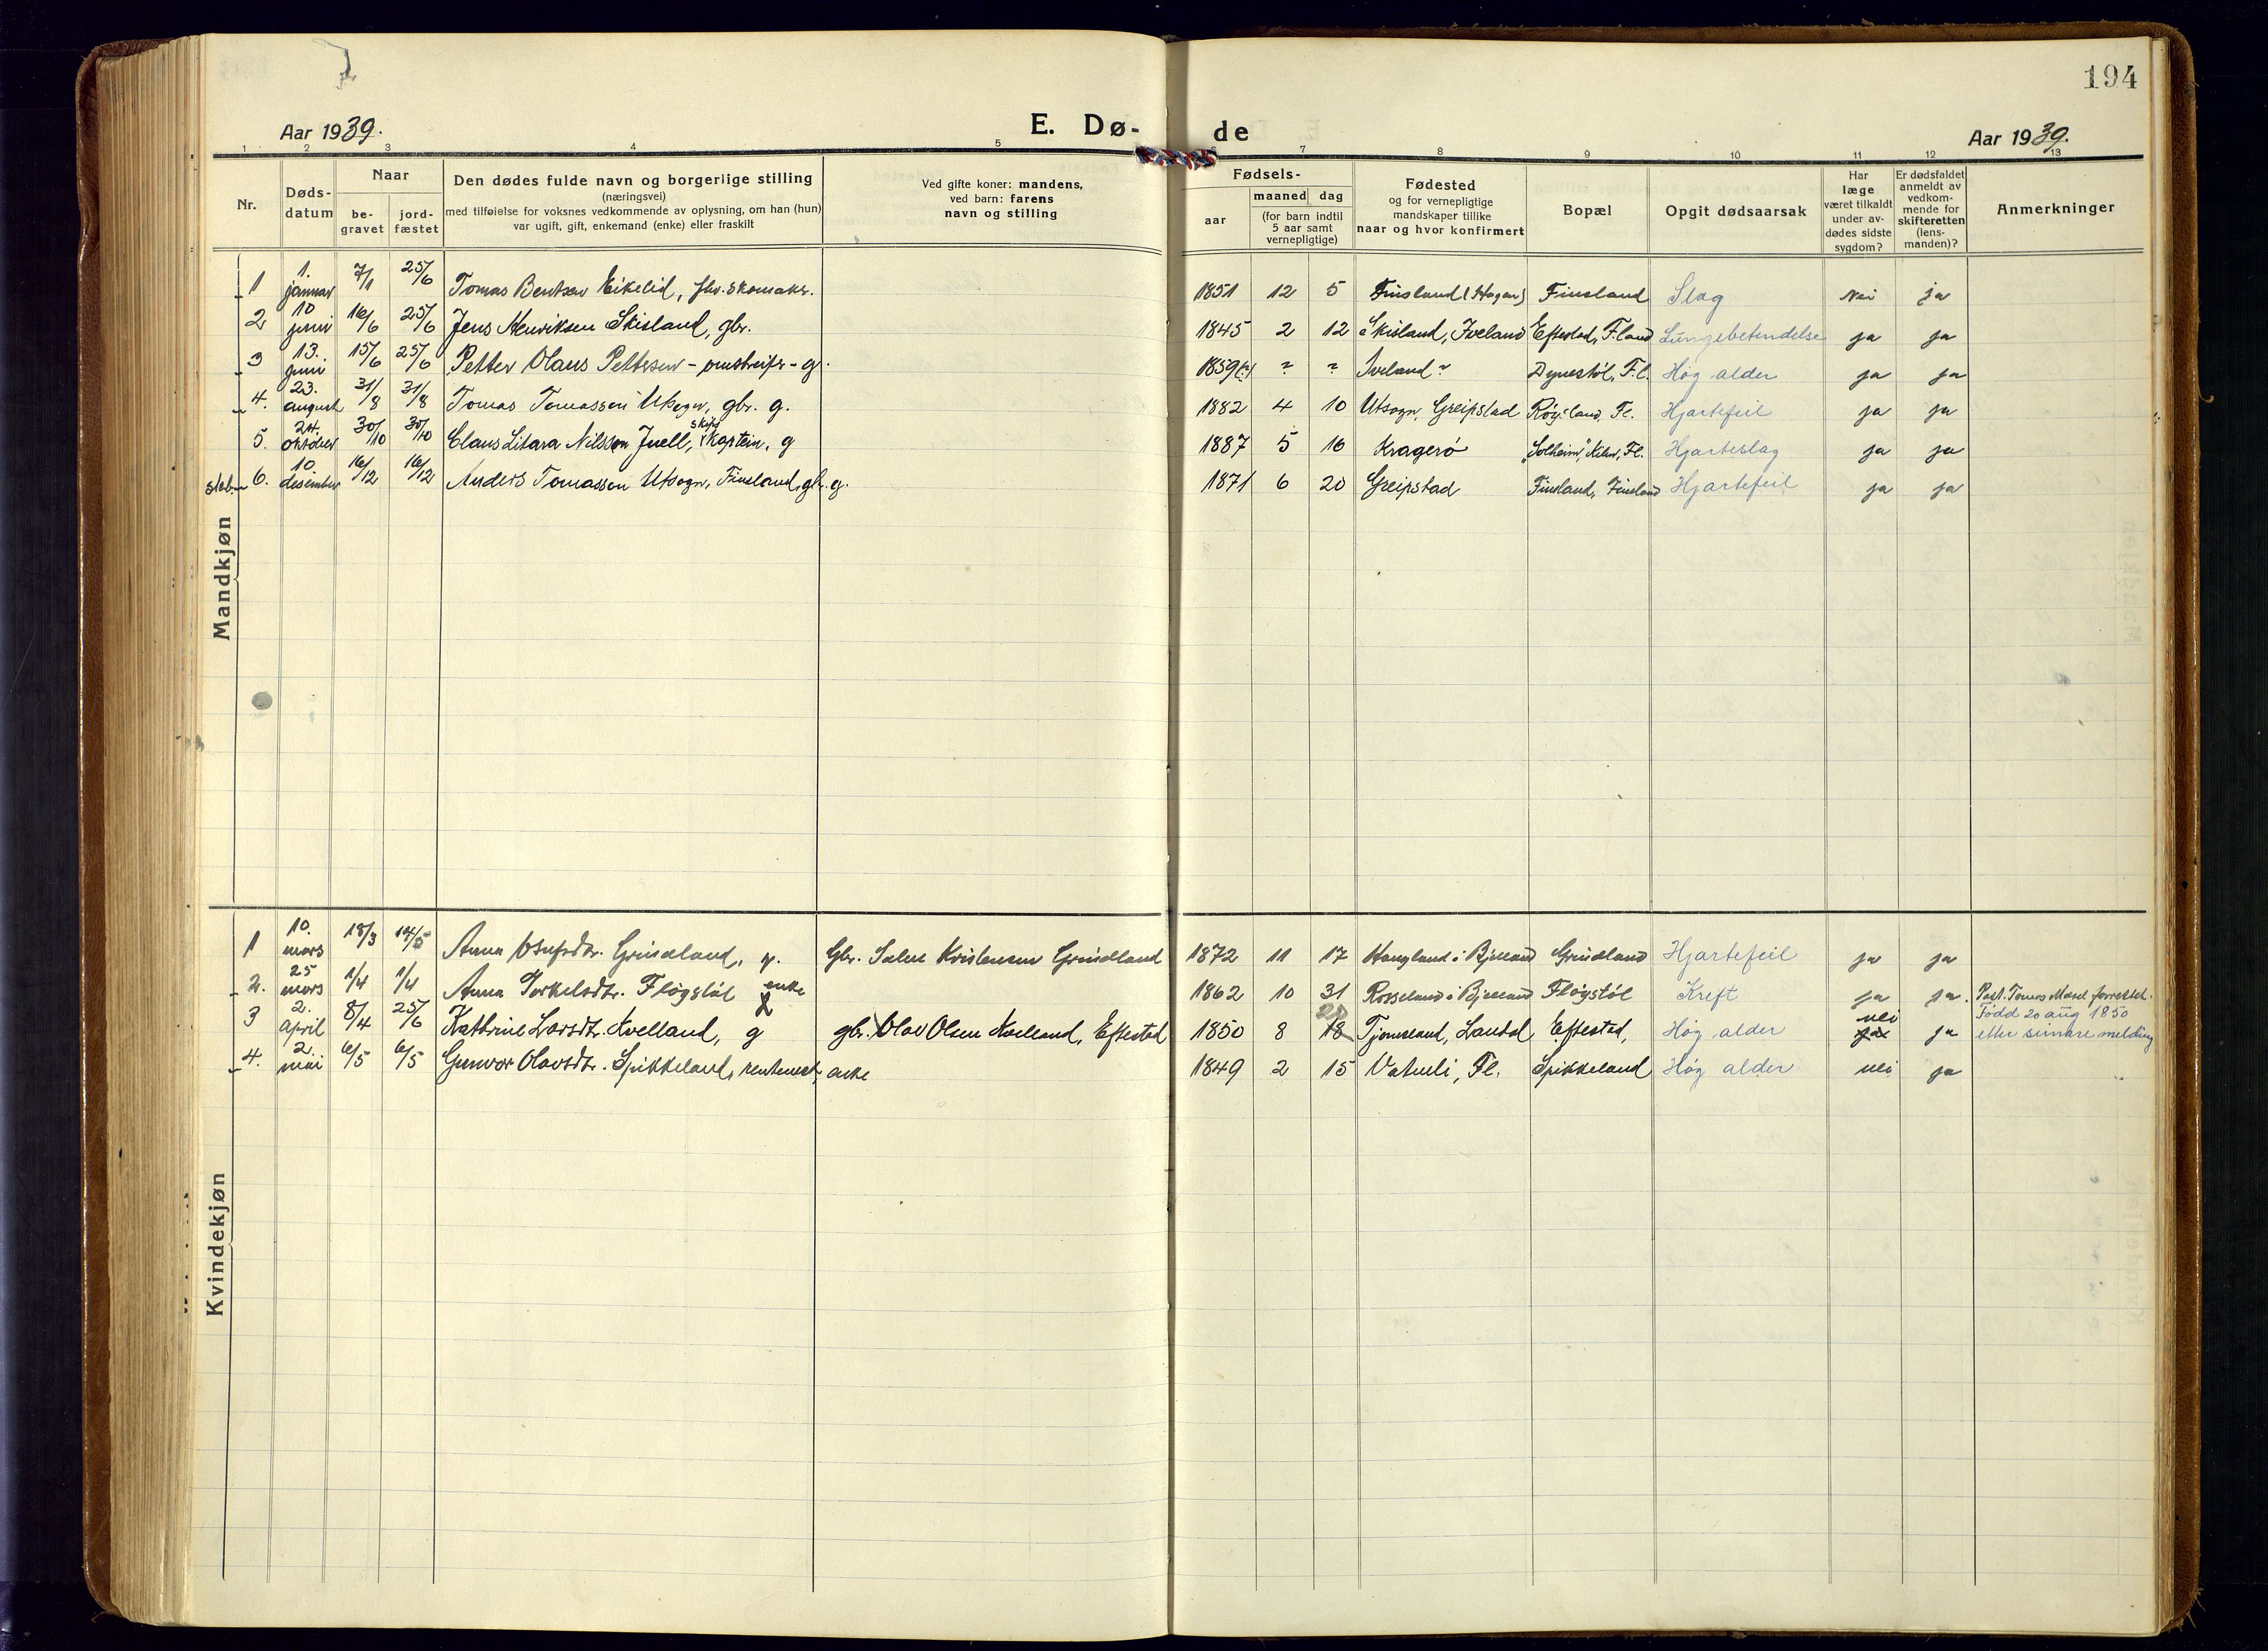 194
Aar 1939.
E. Dø-
de
Aar 1939.
1 2 3 4 5 6 7 8 9 10 11 12 13
Nr.
Døds-
datum
Naar
be-
gravet
jord-
fæstet
Den dødes fulde navn og borgerlige stilling
(næringsvei)
med tilføielse for voksnes vedkommende av oplysning, om han (hun)
var ugift, gift, enkemand (enke) eller fraskilt
Ved gifte koner: mandens,
ved barn: farens
navn og stilling
Fødsels-
aar
maaned dag
(for barn indtil
5 aar samt
vernepligtige)
Fødested
og for vernepligtige
mandskaper tillike
naar og hvor konfirmert
Bopæl
Opgit dødsaarsak
Har
læge
været tilkaldt
under av-
dødes sidste
sygdom?
Er dødsfaldet
anmeldt av
vedkom-
mende for
skifteretten
(lens-
manden)?
Anmerkninger
Mandkjøn
1 1. januar 7/1 25/6 Tomas Bentsen Eikelid, fhv. skomaker. 1851 12 5 Finsland (Hagen) Finsland Slag Nei ja
2 10 juni 16/6 25/6 Jens Henriksen Skisland, gbr. 1845 2 12 Skisland, Iveland Eftestad, F.land Lungebetendelse ja ja
3 13. juni 15/6 25/6 Petter Olaus Pettersen - omstreifer - g. 1859(?) ? ? Iveland ? Dynestøl, F.l. Høg alder ja ja
4. 23. august 31/8 31/8 Tomas Tomassen Utsogn, gbr. g. 1882 4 10 Utsogn, Greipstad Røysland, Fl. Hjartefeil ja ja
5. 24. oktober 30/10 30/10 Claus Nilssen Juell, skips kaptein, g 1887 5 16 Kragerø "Solheim", Kilen, Fl. Hjarteslag ja ja
6. 10. desember 16/12 16/12 Anders Tomassen Utsogn, Finsland, gbr. g. 1871 6 20 Greipstad Finsland, Finsland Hjartefeil ja ja
Kvindekjøn
1 10. mars 18/3 14/5 Anna Osufsdtr. Grindland, g. Gbr. Salve Kristensen Grindland 1872 11 17 Haugland i Bjelland Grindland Hjartefeil ja ja
2. 25 mars 1/4 1/4 Anna Torkelsdtr. Fløgstøl enke 1862 10 31 Rosseland i Bjelland Fløgstøl Kreft ja ja.
3 2. april 8/4 25/6 Kathrine Larsdtr. Kvelland, g gbr. Olav Olsen Kvelland, Eftestad 1850 8 18 20 Tjomsland, Laudal Eftestad, Høg alder ja nei ja Født 20 aug 1850
etter seinare melding
4. 2. mai 6/5 6/5 Gunvor Olavsdtr. Spikkeland, rentenist, enke 1849 2 15 Vatneli, Fl. Spikkeland Høg alder nei ja